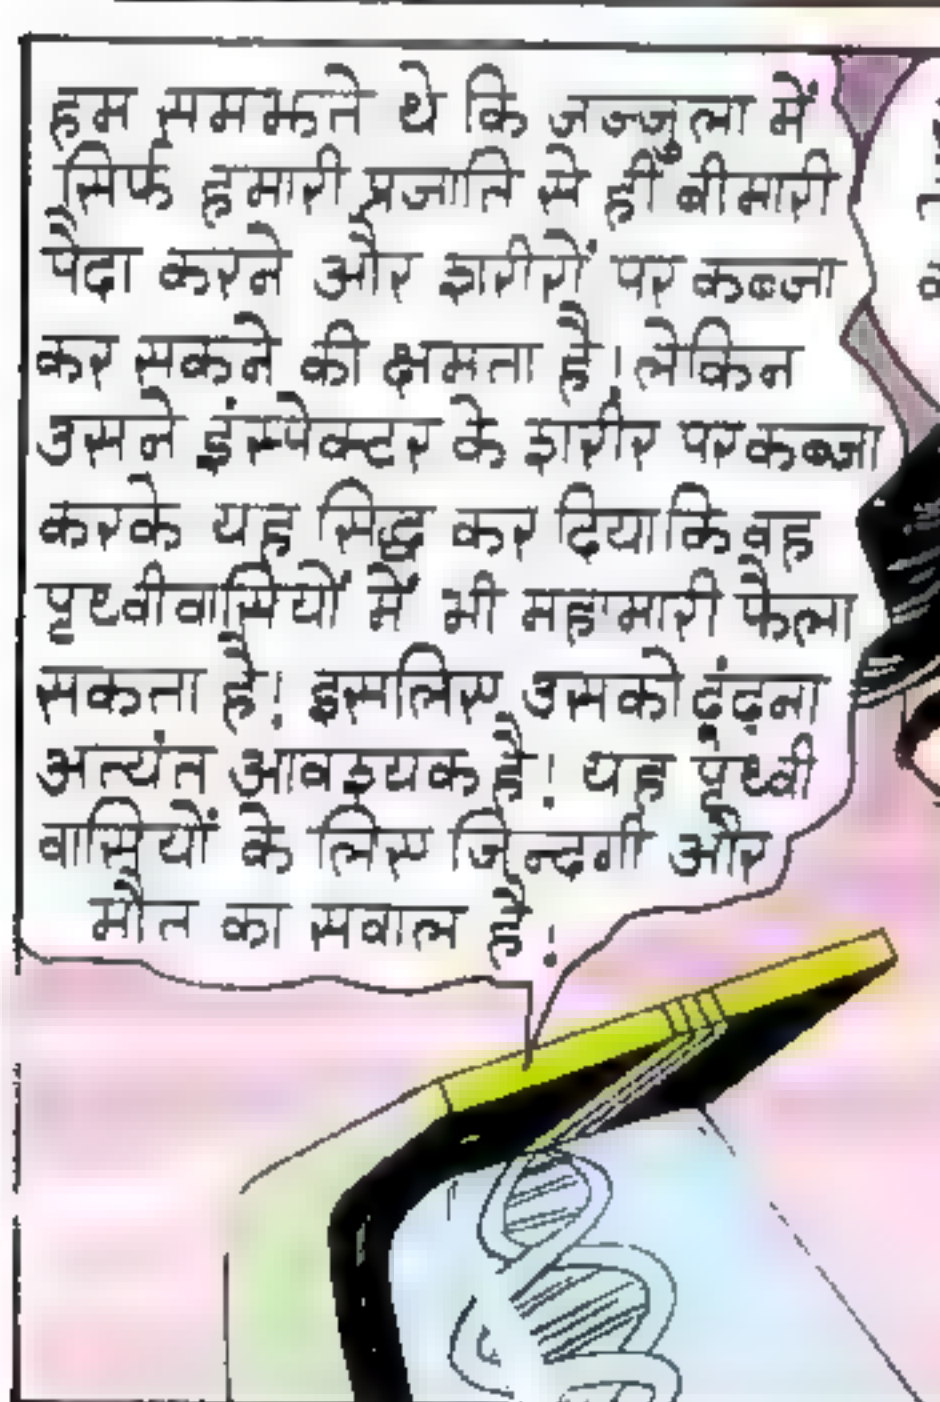 हम समझते थे कि जज्जुला में
सिर्फ हमारी प्रजाति में ही बीमारी
पैदा करने और शरीरों पर कब्जा
कर सकने की क्षमता है। लेकिन
उसने इंस्पेक्टर के शरीर पर कब्जा
करके यह सिद्ध कर दिया कि वह
पृथ्वीवासियों में भी महामारी फैला
सकता है! इसलिए उसको ढूंढ़ना
अत्यंत आवश्यक है! यह पृथ्वी
वासियों के लिए जिन्दगी और
मौत का सवाल है!